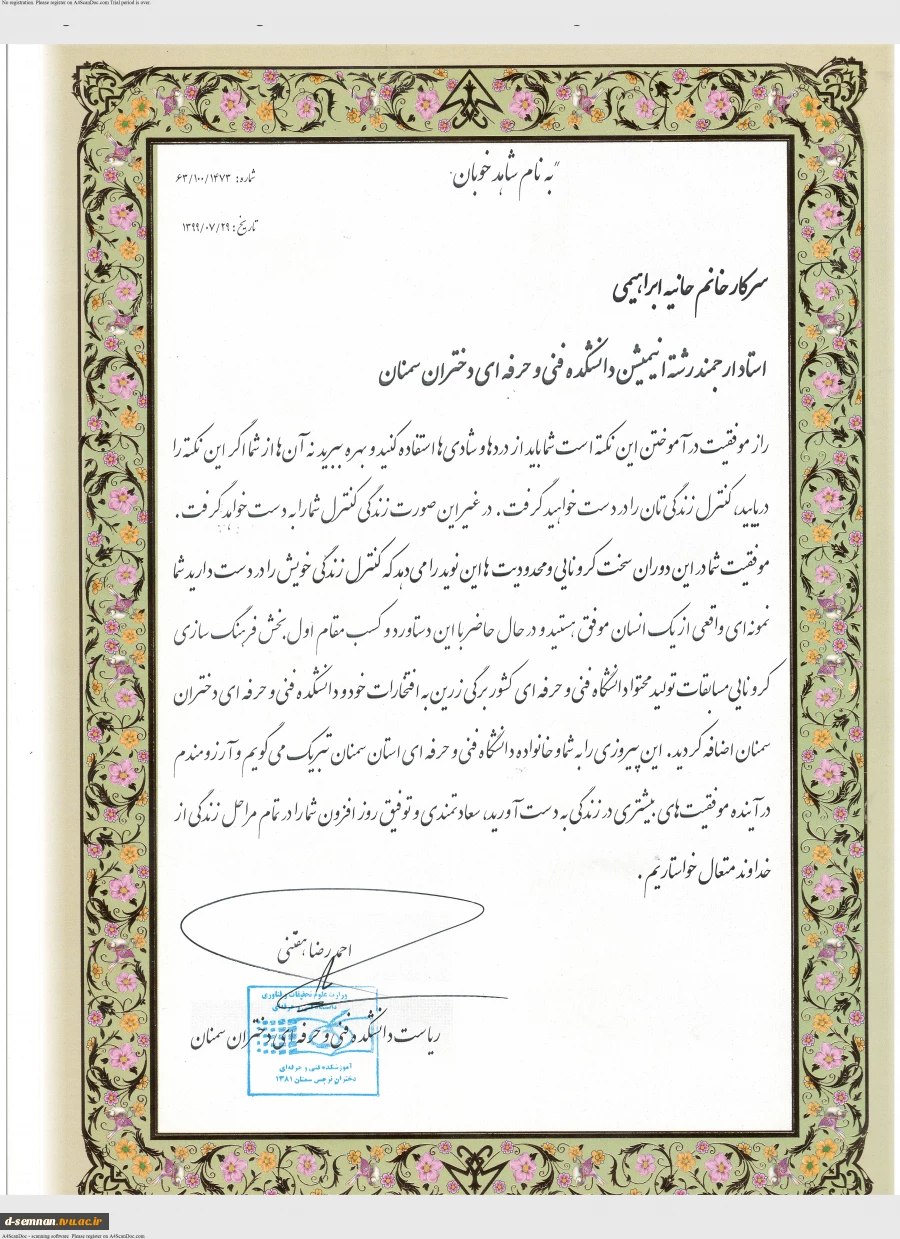 No registration. Please register on A4ScanDoc.com Trial period is over.
"به نام شاهد خوبان"
شماره: ۶۳/۱۰۰/۱۴۷۳
تاریخ: ۱۳۹۹/۰۷/۲۹
سرکار خانم حانیه ابراهیمی
استاد ارجمند رشته انیمیشن دانشکده فنی و حرفه ای دختران سمنان
راز موفقیت در آموختن این نکته است شما باید از دردها و شادی ها استفاده کنید و بهره ببرید نه آن ها از شما اگر این نکته را
دریابید، کنترل زندگی تان را در دست خواهید گرفت. در غیر این صورت زندگی کنترل شما را به دست خواهد گرفت.
موفقیت شما در این دوران سخت کرونایی و محدودیت ها این نوید را می دهد که کنترل زندگی خویش را در دست دارید شما
نمونه ای واقعی از یک انسان موفق هستید و در حال حاضر با این دستاورد و کسب مقام اول بخش فرهنگ سازی
کرونایی مسابقات تولید محتوا دانشگاه فنی و حرفه ای کشور برگی زرین به افتخارات خود و دانشکده فنی و حرفه ای دختران
سمنان اضافه کردید. این پیروزی را به شما و خانواده دانشگاه فنی و حرفه ای استان سمنان تبریک می گویم و آرزومندم
در آینده موفقیت های بیشتری در زندگی به دست آورید، سعادتمندی و توفیق روز افزون شما را در تمام مراحل زندگی از
خداوند متعال خواستاریم.
احمدرضا هفتنی
وزارت علوم تحقیقات و فناوری
ریاست دانشکده فنی و حرفه ای دختران سمنان
آموزشکده فنی و حرفه‌ای
دختران نرجس سمنان ۱۳۸۱
d-semnan.tvu.ac.ir
A4ScanDoc - scanning software. Please register on A4ScanDoc.com